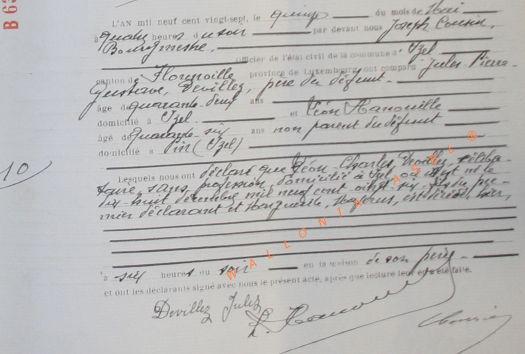 B 6
L'AN mil neuf cent vingt-sept, le quinze du mois de Mai
à quatre heures du soir par devant nous Joseph Cousin
Bourgmestre
officier de l'état civil de la commune d'Izel
canton de Florenville province de Luxembourg ont comparu Jules Pierre
Gustave, Devillez, père du défunt
âgé de quarante deux ans
domicilié à Izel et Léon Hanouille
âgé de quarante six ans non parent du défunt
domicilié à Pin (Izel)
10
Lesquels nous ont déclaré que Léon, Charles, Devillez, céliba-
taire, sans profession, domicilié à Izel où il est né le
dix-huit décembre mil neuf cent vingt six, du pre-
mier déclarant et est décédé, hier,
à six heures du soir en la maison de son père
et ont les déclarants signé avec nous le présent acte, après que lecture leur en a été faite.
Devillez Jules
WALLONIA